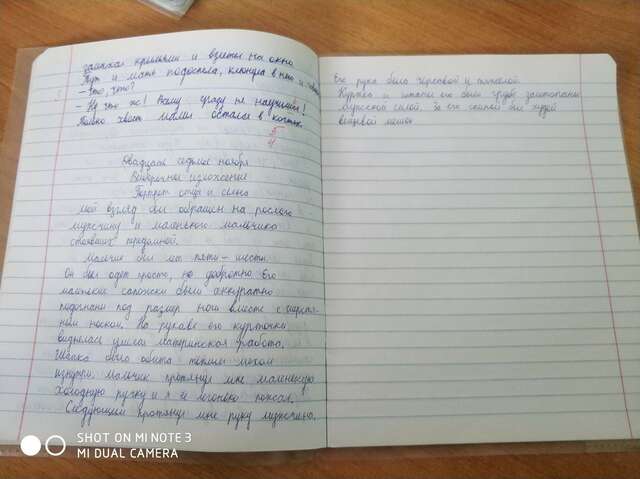 крыльями и взлеты на окно
Тут и мать подоспела, клюнула в нею и
- Что, что?
- Ну что ж! Всему сразу не научишь!
Только хвост мамы остался в когтях.
5
4
Двадцать седьмое ноября
Выборочное изложение
Портрет отца и сына
Мой взгляд был обращен на рослого
мужчину и маленького мальчика
стоявших предомной.
Мальчик был лет пяти – шести.
Он был одет просто, но добротно Его
маленькие сапожки были аккуратно
подогнаны под размер ноги вместе с шерстя-
ным носком. На рукаве его курточки
виднелась умелая материнская работа.
Шапка была обита теплым мехом
изнутри. Мальчик протянул мне маленькую
холодную ручку и я её легонько пожал.
Следующим протянул мне руку мужчина.
Его рука была черствой и тяжелой.
Куртка и штаны его были грубо заштопаны
мужской силой. За его спиной был худой
вещевой мешок
SHOT ON MI NOTE 3
MI DUAL CAMERA